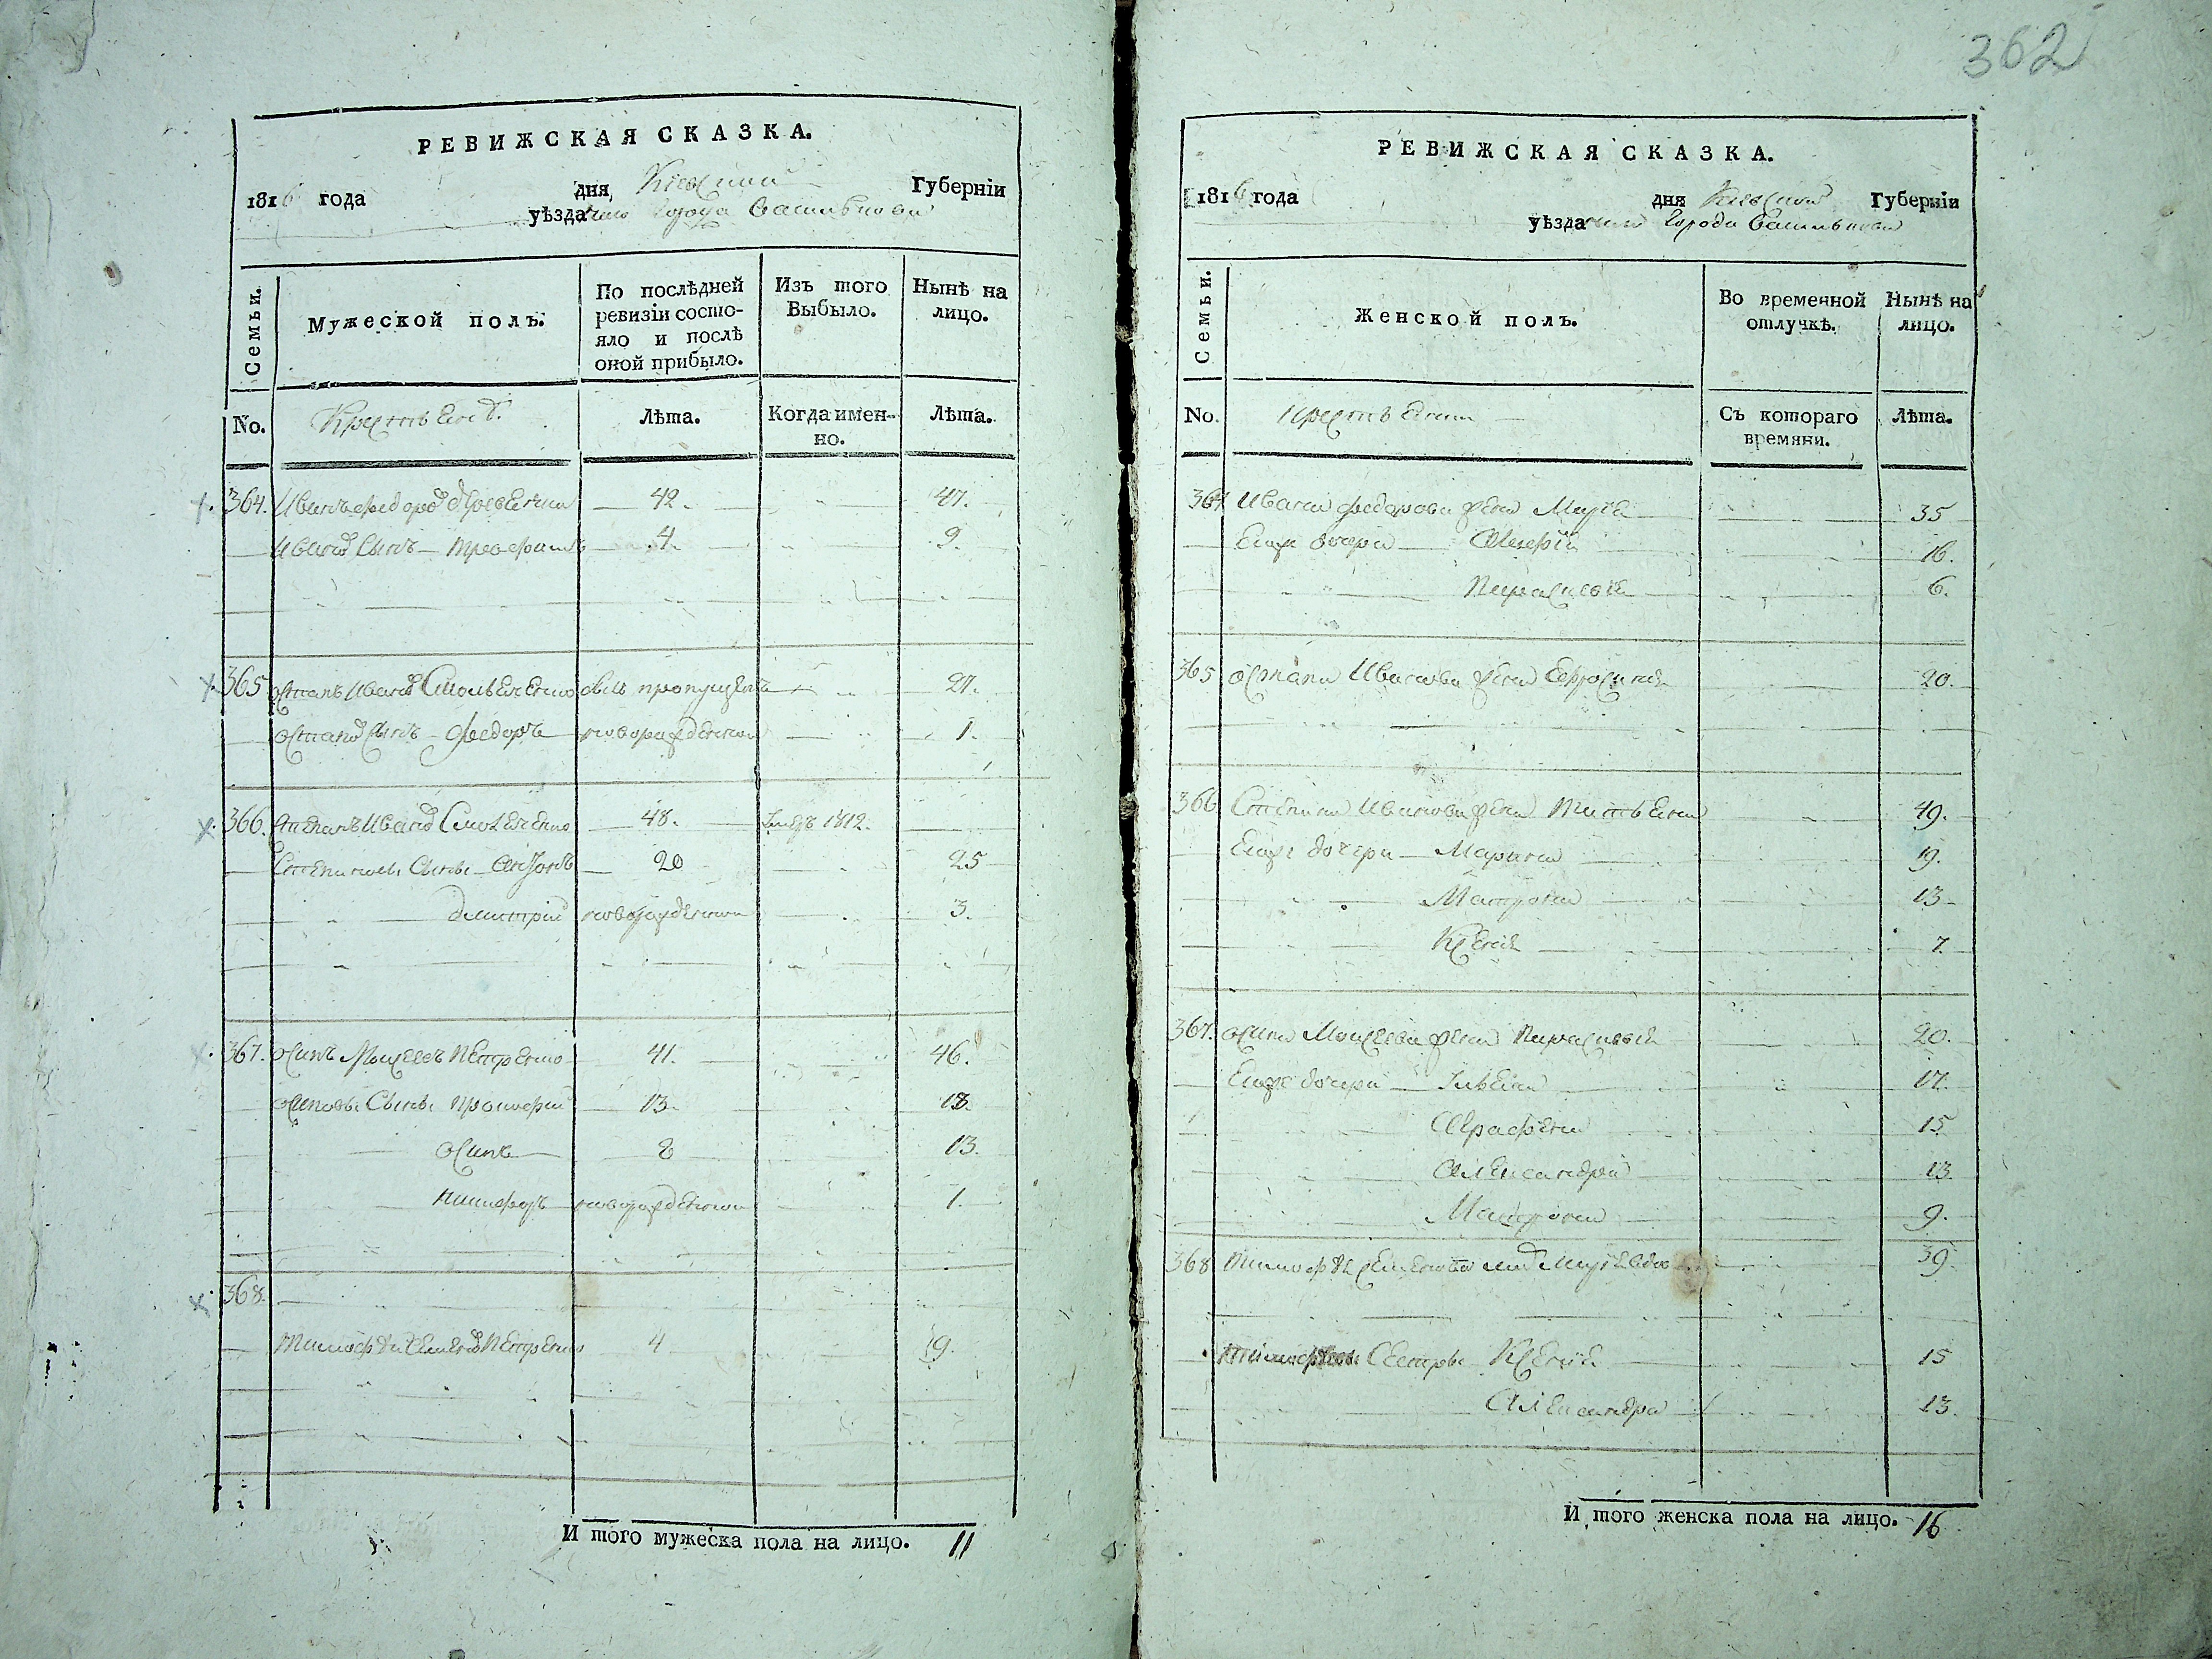 362
РЕВИЖСКАЯ СКАЗКА.
1816 года дня Кіевской Губерніи
уѣзда города Василькова
Семьи.
Мужеской полъ.
По послѣдней ревизіи состо-
яло и послѣ оной прибыло.
Изъ того Выбыло.
Нынѣ на лицо.
No.
Лѣта.
Когда имен-
но.
Лѣта.
364. Иванъ Федоров 42. 47.
Иванов Сынъ Трофимъ 4. 9.
365 Остапъ Иванов былъ пропущенъ 21.
Остапов Сынъ Федоръ новорожденной 1.
366. Степанъ Иванов 48. 1812.
Степановы Сыны Антонъ 20 25
Дмитрій новорожденной 3.
367. Осипъ Моисеевъ Петренко 41. 46.
Осиповы Сыны Прокофій 13. 18.
Осипъ 8 13.
Никифоръ новорожденной 1.
368.
Тимофѣй Семенов Петренко 4 9.
И того мужеска пола на лицо. 11
РЕВИЖСКАЯ СКАЗКА.
1816 года дня Кіевской Губерніи
уѣзда города Василькова
Семьи.
Женской полъ.
Во временной отлучкѣ.
Нынѣ на лицо.
No.
Съ котораго времяни.
Лѣта.
364 Ивана Федорова жена Марѣя 35
Ево же дочери 16.
Параскевія 6.
365 Остапа Иванова жена Ефросинія 20.
366 Степана Иванова жена Татьяна 49.
Ево же дочери Марина 19.
Матрона 13
Ксенія 7
367. Осипа Моисеева жена Параскевія 20.
Ево же дочери 17.
15
Александра 13
Матрона 9.
368 Тимофѣя Семенова 39
Сестры Ксенія 15
Александра 13.
И того женска пола на лицо. 16